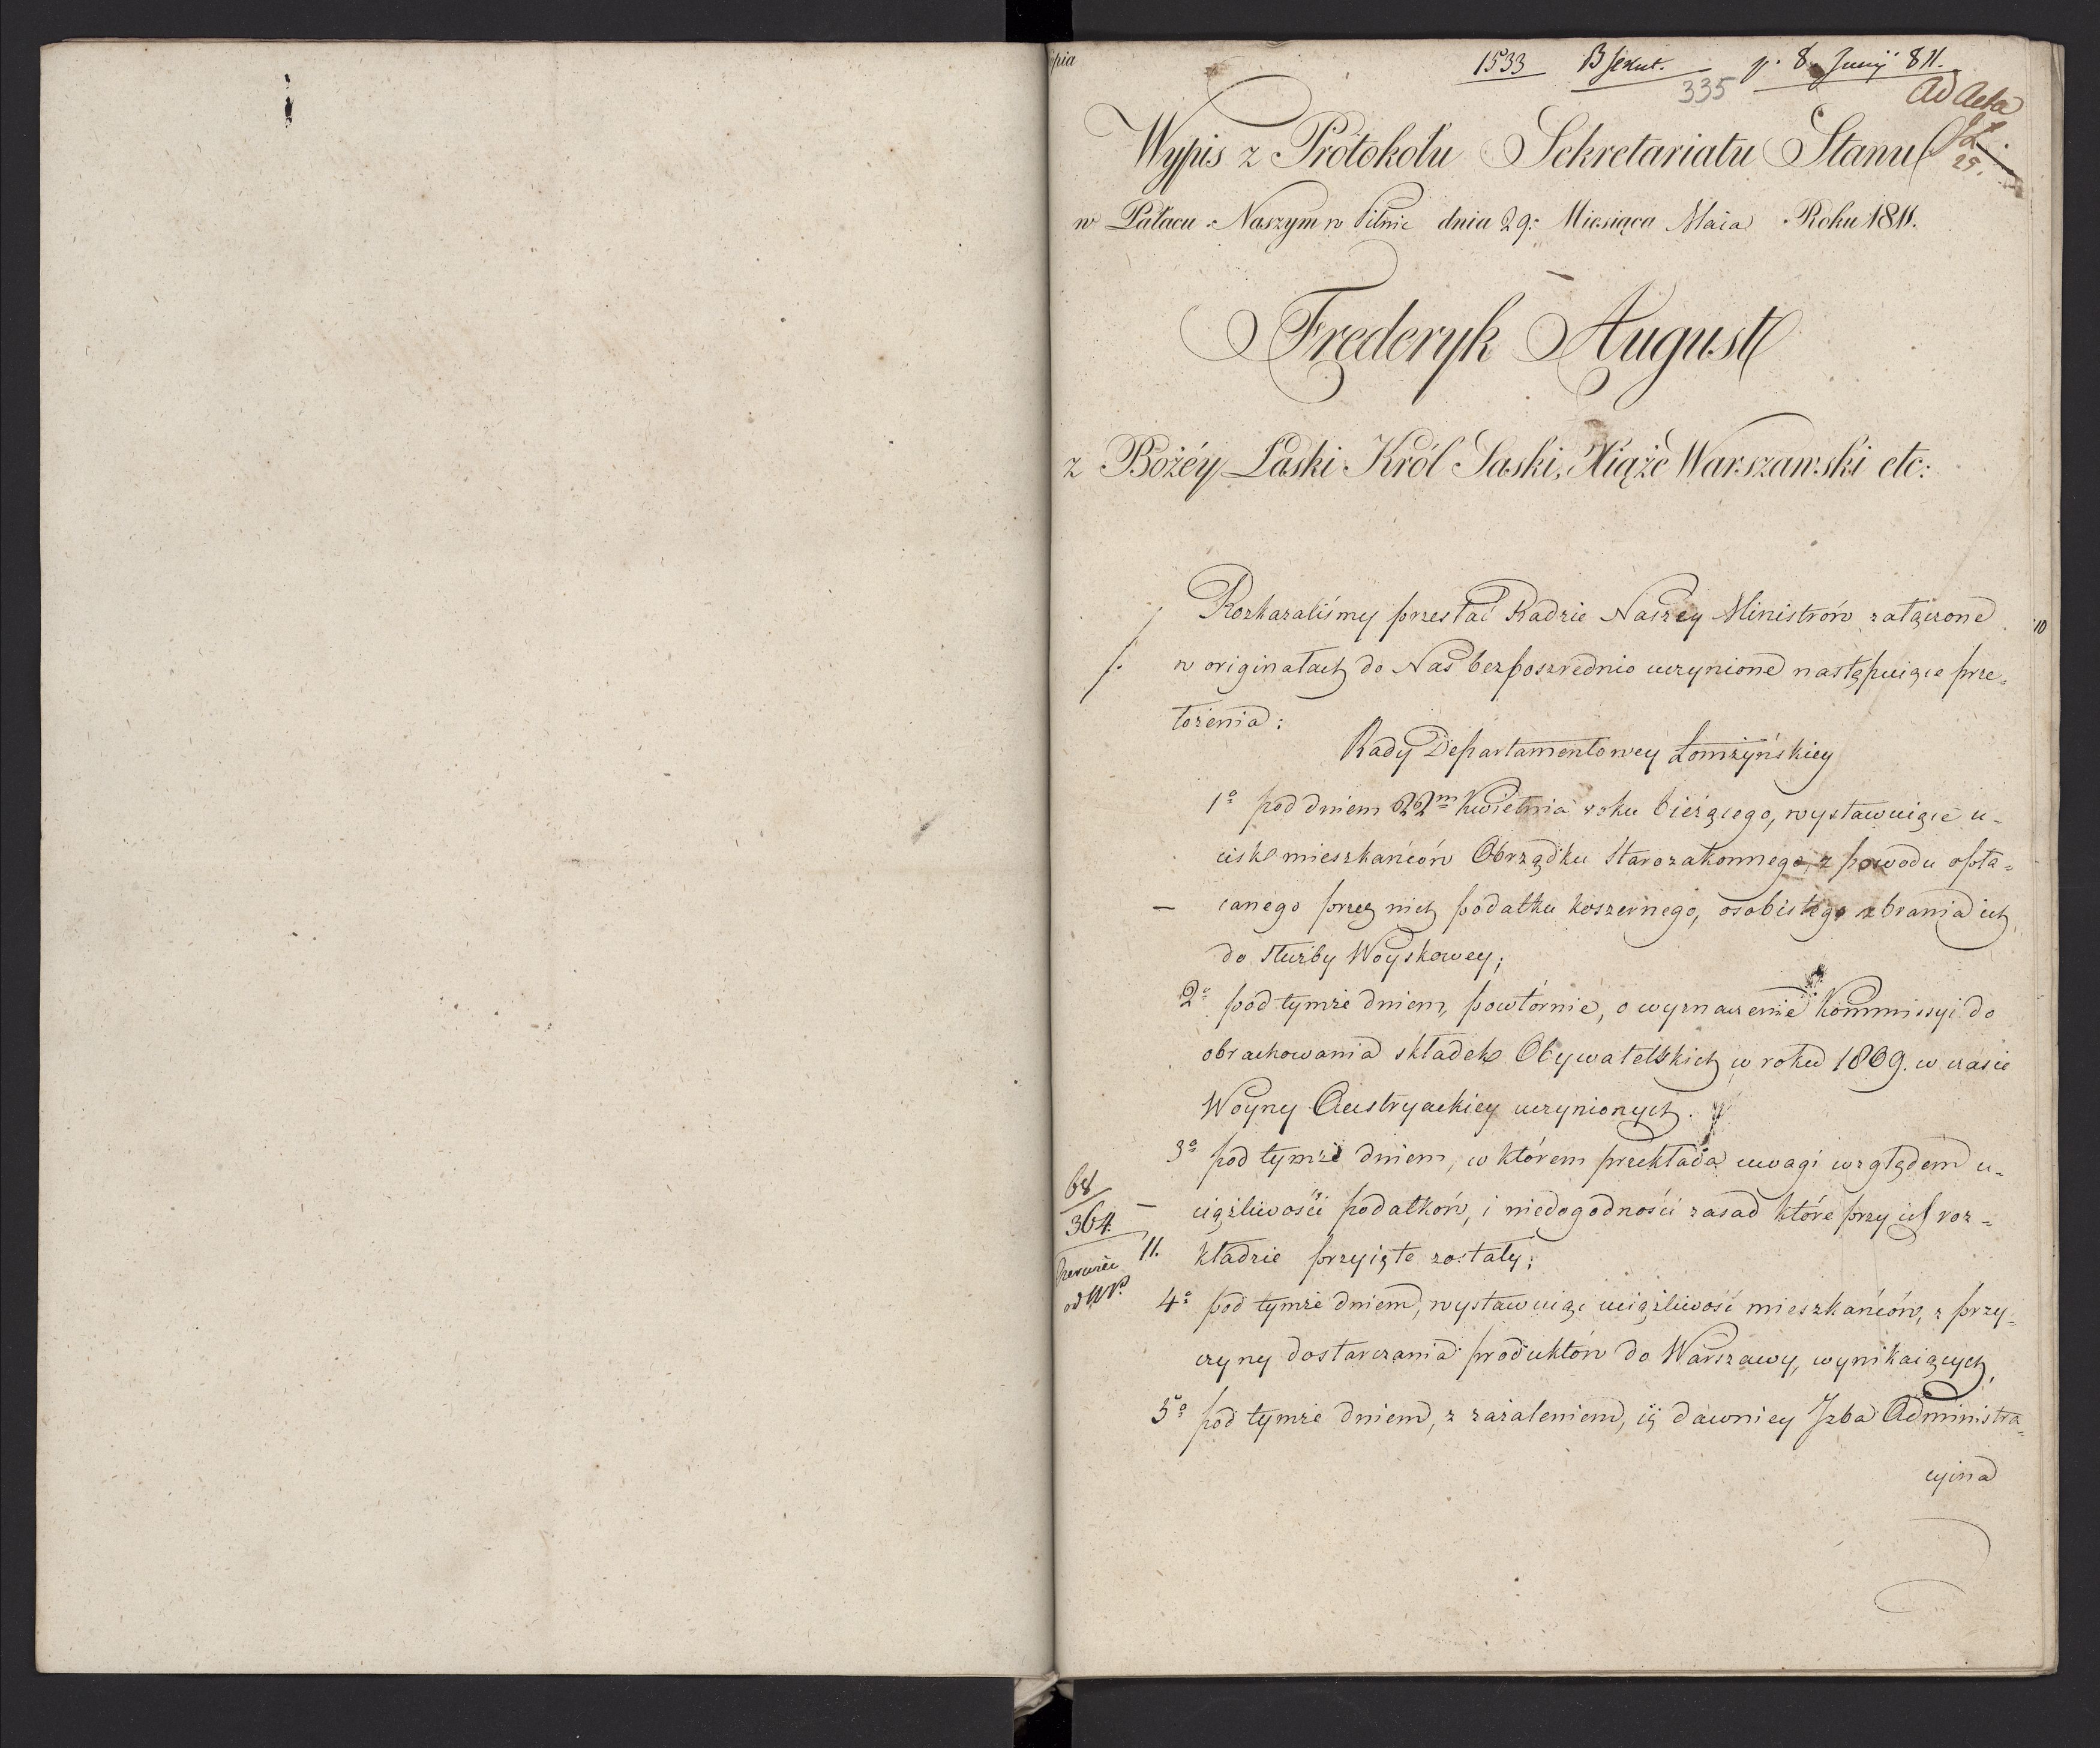 1533 p. 8 Junij 811.
335
Ad Acta
25.
Wypis z Protokołu Sekretariatu Stanu
w Pałacu Naszym w Pilnic dnia 29. Miesiąca Maia Roku 1811.
Frederyk August
z Bożéy Łaski Król Saski, Xiąże Warszawski etc:
Rozkazaliśmy przesłać Radzie Naszey Ministrów załączone
w originałach do Nas bezposzrednio uczynione następuiące prze-
łożenia:
Rady Departamentowey Łomżyńskiey
1º pod dniem 22m Kwietnia roku bieżącego, wystawuiące u-
cisk mieszkańców Obrządku Starozakonnego, z powodu opła-
canego przez nich podatku koszernego, osobistego zbrania ich
do służby Woyskowey;
2º pod tymże dniem, powtórnie, o wyznaczenie Kommissyi do
obrachowania składek Obywatelskich w roku 1809. w czasie
Woyny Austryackiey uczynionych.
3º pod tymże dniem, w którem przekłada uwagi względem u-
ciążliwości podatków, i niedogodności zasad które przy ich roz-
kładzie przyięte zostały;
68
364
11.
od
4º pod tymże dniem, wystawuiąc uciążliwość mieszkańców, z przy-
czyny dostarczania produktów do Warszawy, wynikaiących,
5º pod tymże dniem, z zażaleniem, iż dawniey Izba Administra-
cyina